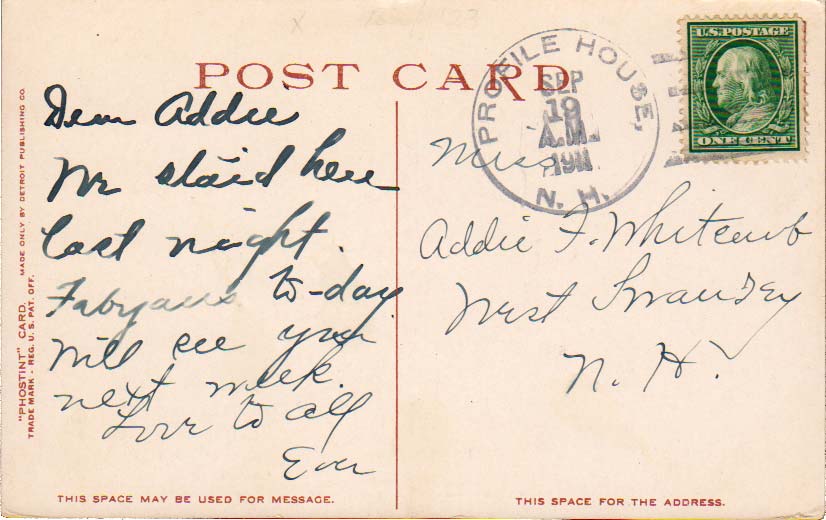 POST CARD
Dear Addie
We staid here
last night.
Fabyans to-day
Will see you
next week.
Love to all
PROFILE HOUSE,
SEP
19
A.M.
1911
N. H.
U.S. POSTAGE
ONE CENT
Miss
Addie F. Whitcomb
West Swanzey
N. H.
"PHOSTINT" CARD. MADE ONLY BY DETROIT PUBLISHING CO.
TRADE MARK - REG. U. S. PAT. OFF.
THIS SPACE MAY BE USED FOR MESSAGE.
THIS SPACE FOR THE ADDRESS.